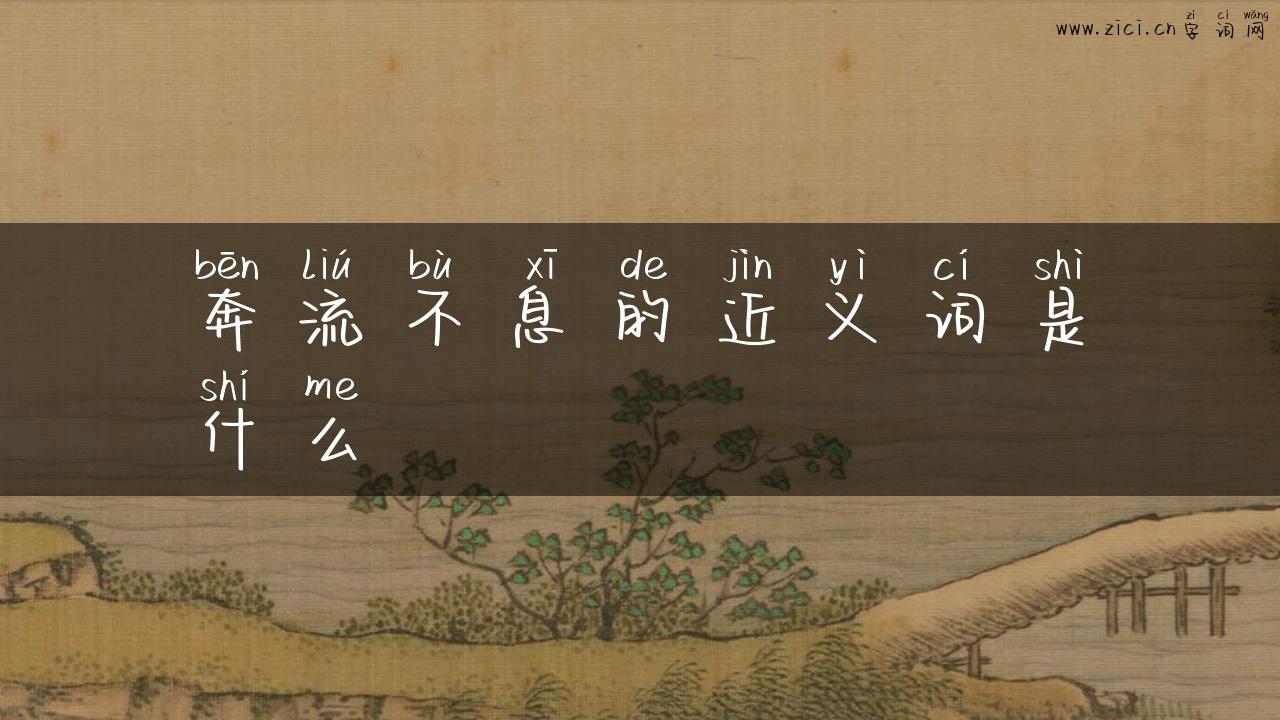 zì cí wǎng
www.zici.cn 字词网
bēn liú bù xī de jìn yì cí shì
奔流不息的近义词是
shí me
什么